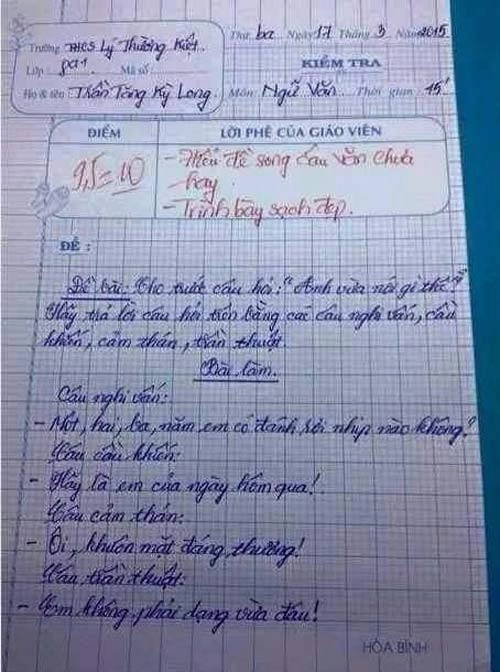 Trường THCS Lý Thường Kiệt
Thứ ba Ngày 17 Tháng 3 Năm 2015
Lớp 8a1 Mã số
KIỂM TRA
Họ & tên: Trần Tăng Kỳ Long
Môn: Ngữ Văn. Thời gian 15'
ĐIỂM
LỜI PHÊ CỦA GIÁO VIÊN
9,5 = 10
- Hiểu đề song câu văn chưa
hay.
- Trình bày sạch đẹp.
ĐỀ :
Đề bài: Cho trước câu hỏi: "Anh vừa nói gì thế?"
Hãy trả lời câu hỏi trên bằng các câu nghi vấn, cầu
khiến, cảm thán, trần thuật.
Bài làm.
Câu nghi vấn:
- Một, hai, ba, năm em có đánh rơi nhịp nào không?
Câu cầu khiến:
- Hãy là em của ngày hôm qua!
Câu cảm thán:
- Ôi, khuôn mặt đáng thương!
Câu trần thuật:
- Em không phải dạng vừa đâu!
HÒA BÌNH